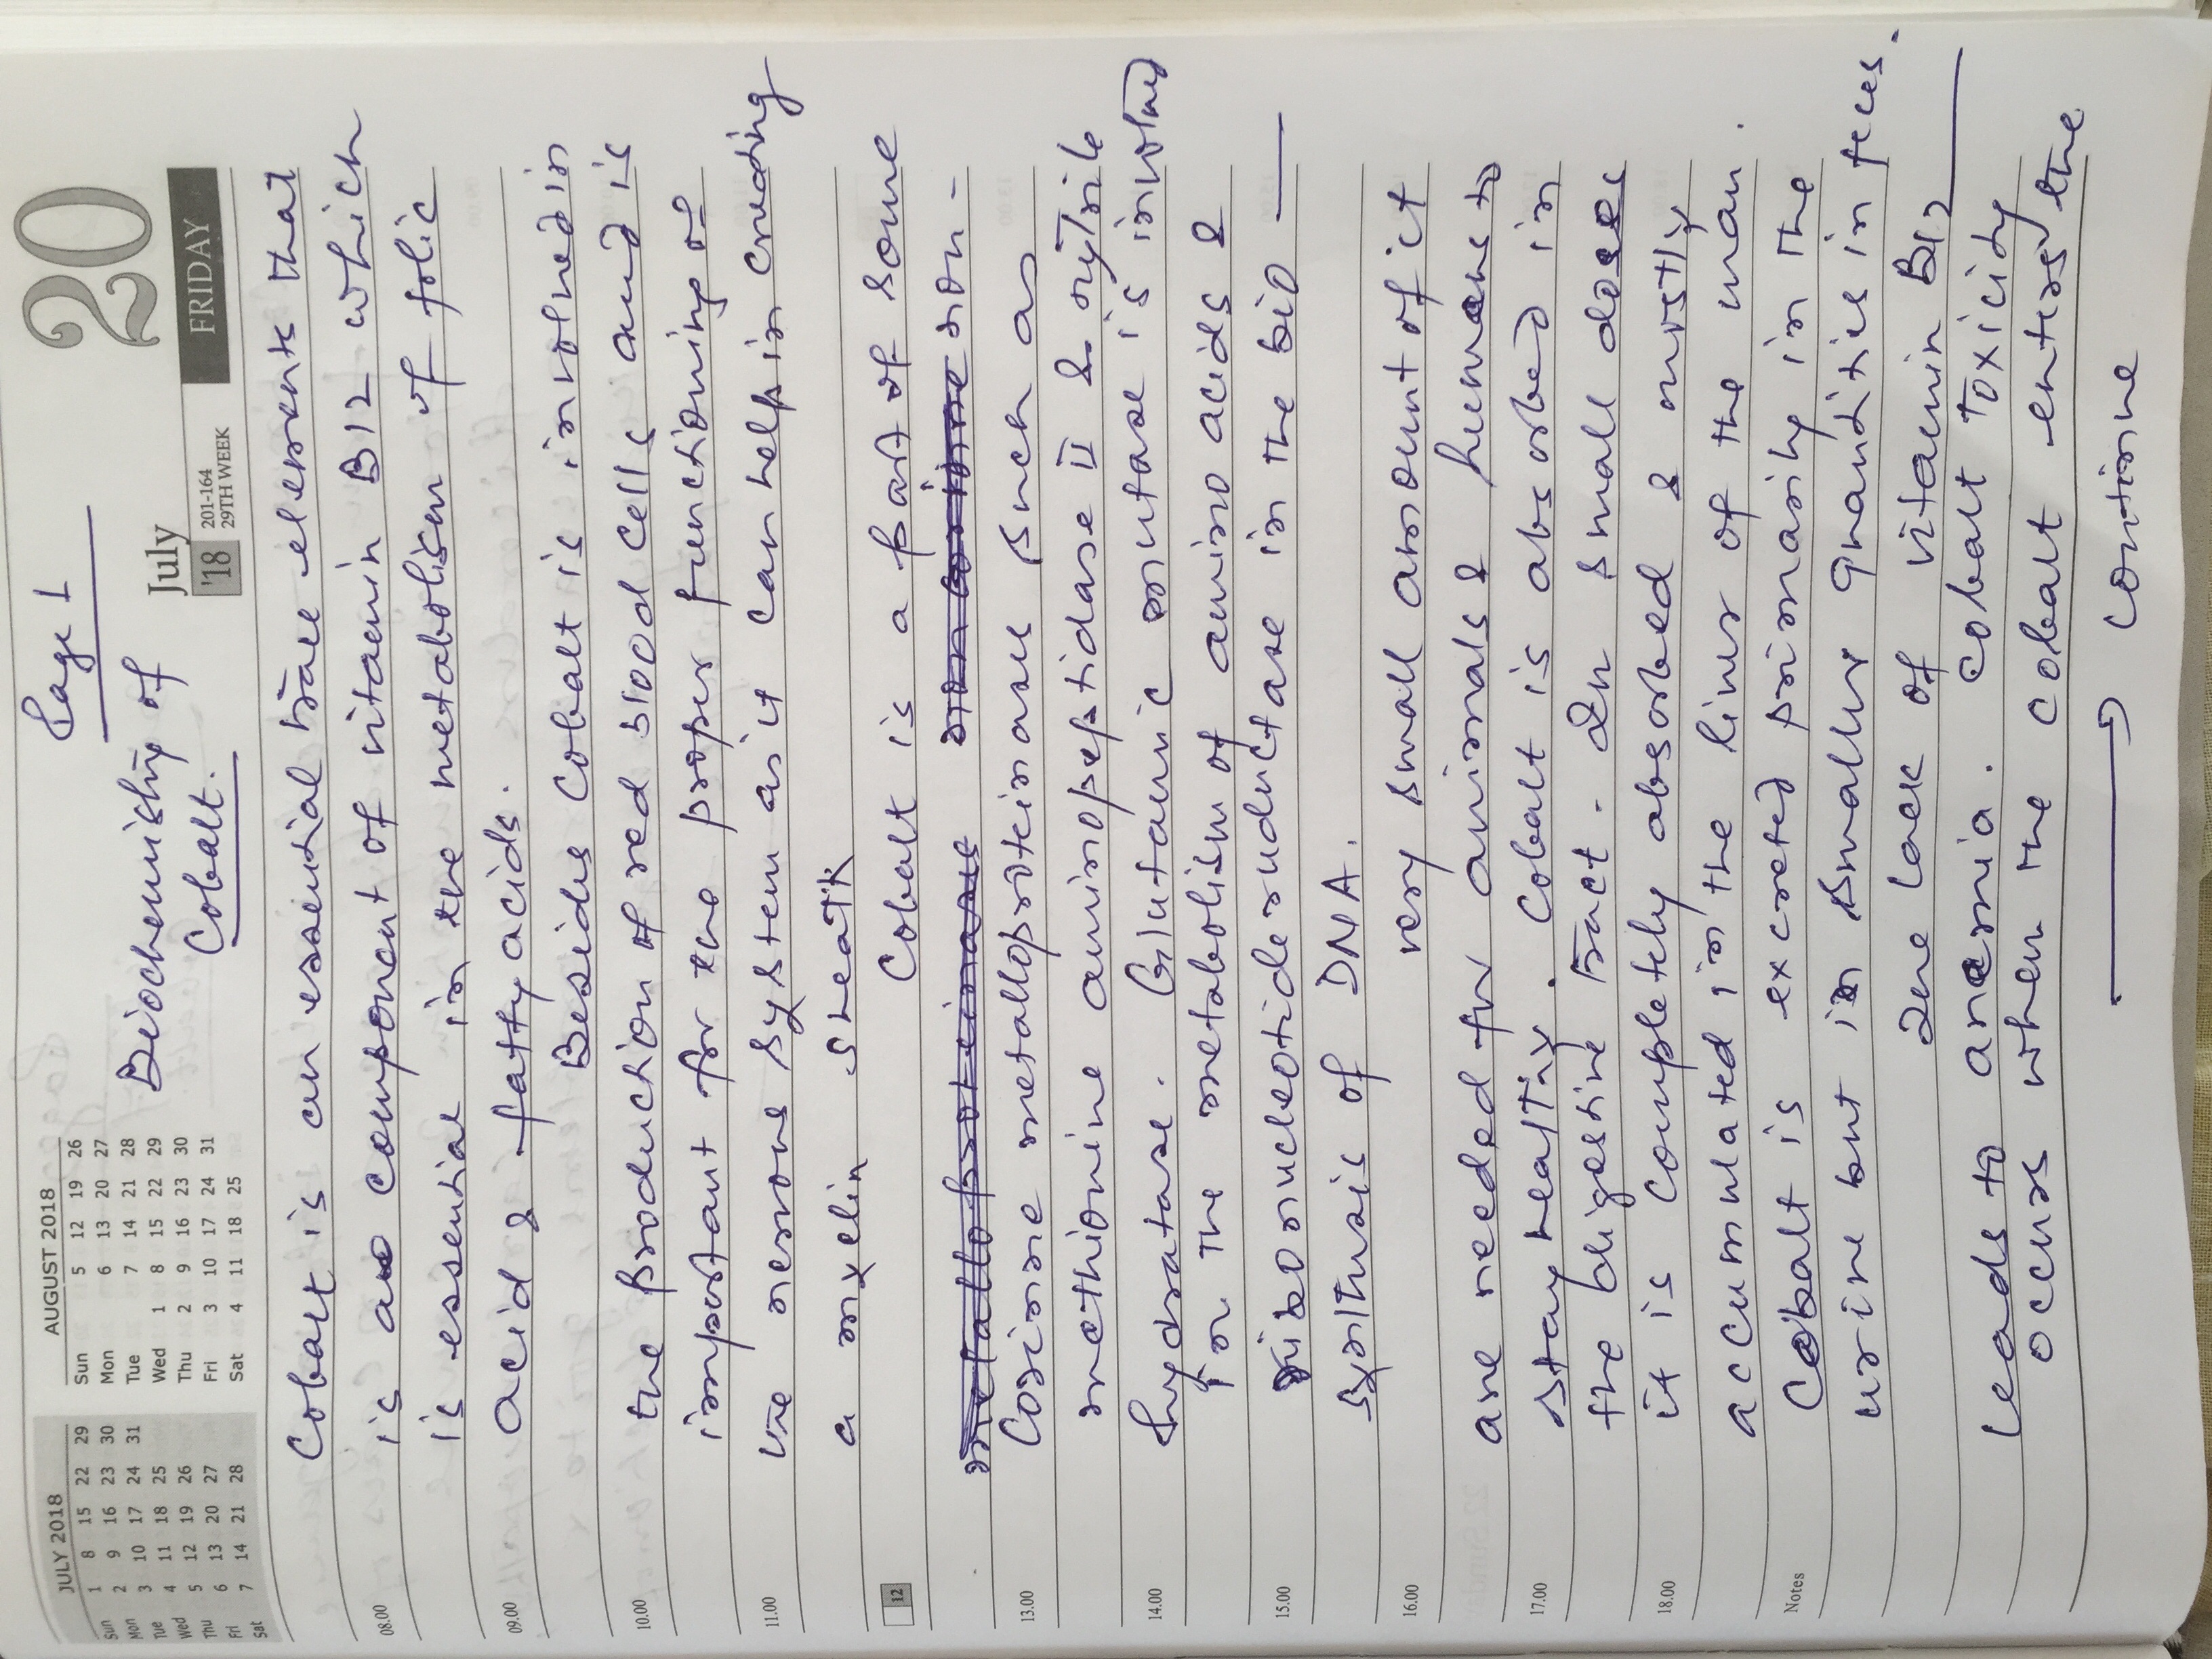 Page 1
Biochemistry of
Cobalt.
JULY 2018
Sun 1 8 15 22 29
Mon 2 9 16 23 30
Tue 3 10 17 24 31
Wed 4 11 18 25
Thu 5 12 19 26
Fri 6 13 20 27
Sat 7 14 21 28
AUGUST 2018
Sun 5 12 19 26
Mon 6 13 20 27
Tue 7 14 21 28
Wed 1 8 15 22 29
Thu 2 9 16 23 30
Fri 3 10 17 24 31
Sat 4 11 18 25
July
'18
201-164
29TH WEEK
20
FRIDAY
Cobalt is an essential trace elements that
08.00 is a component of vitamin B12 which
is essential in the metabolism of folic
09.00 acid & fatty acids.
Besides Cobalt is involved in
10.00 the production of red blood cells and is
important for the proper functioning of
11.00 the nervous system as it can help in creating
a myelin sheath
12 Cobalt is a part of some
metalloproteinase non-
13.00 Corinne metalloproteinases such as
methionine aminopeptidase II & nitrile
14.00 hydratase. Glutamic mutase is involved
in the metabolism of amino acids &
15.00 ribonucleotide reductase in the bio
synthesis of DNA.
16.00 very small amount of it
are needed for animals & humans to
17.00 stay healthy. Cobalt is absorbed in
the digestive tract. In small doses
18.00 it is completely absorbed & mostly
accumulated in the liver of the man.
Notes Cobalt is excreted primarily in the
urine but in smaller quantities in feces.
The lack of vitamin B12
leads to anaemia. Cobalt toxicity
occurs when the cobalt enters the
continue